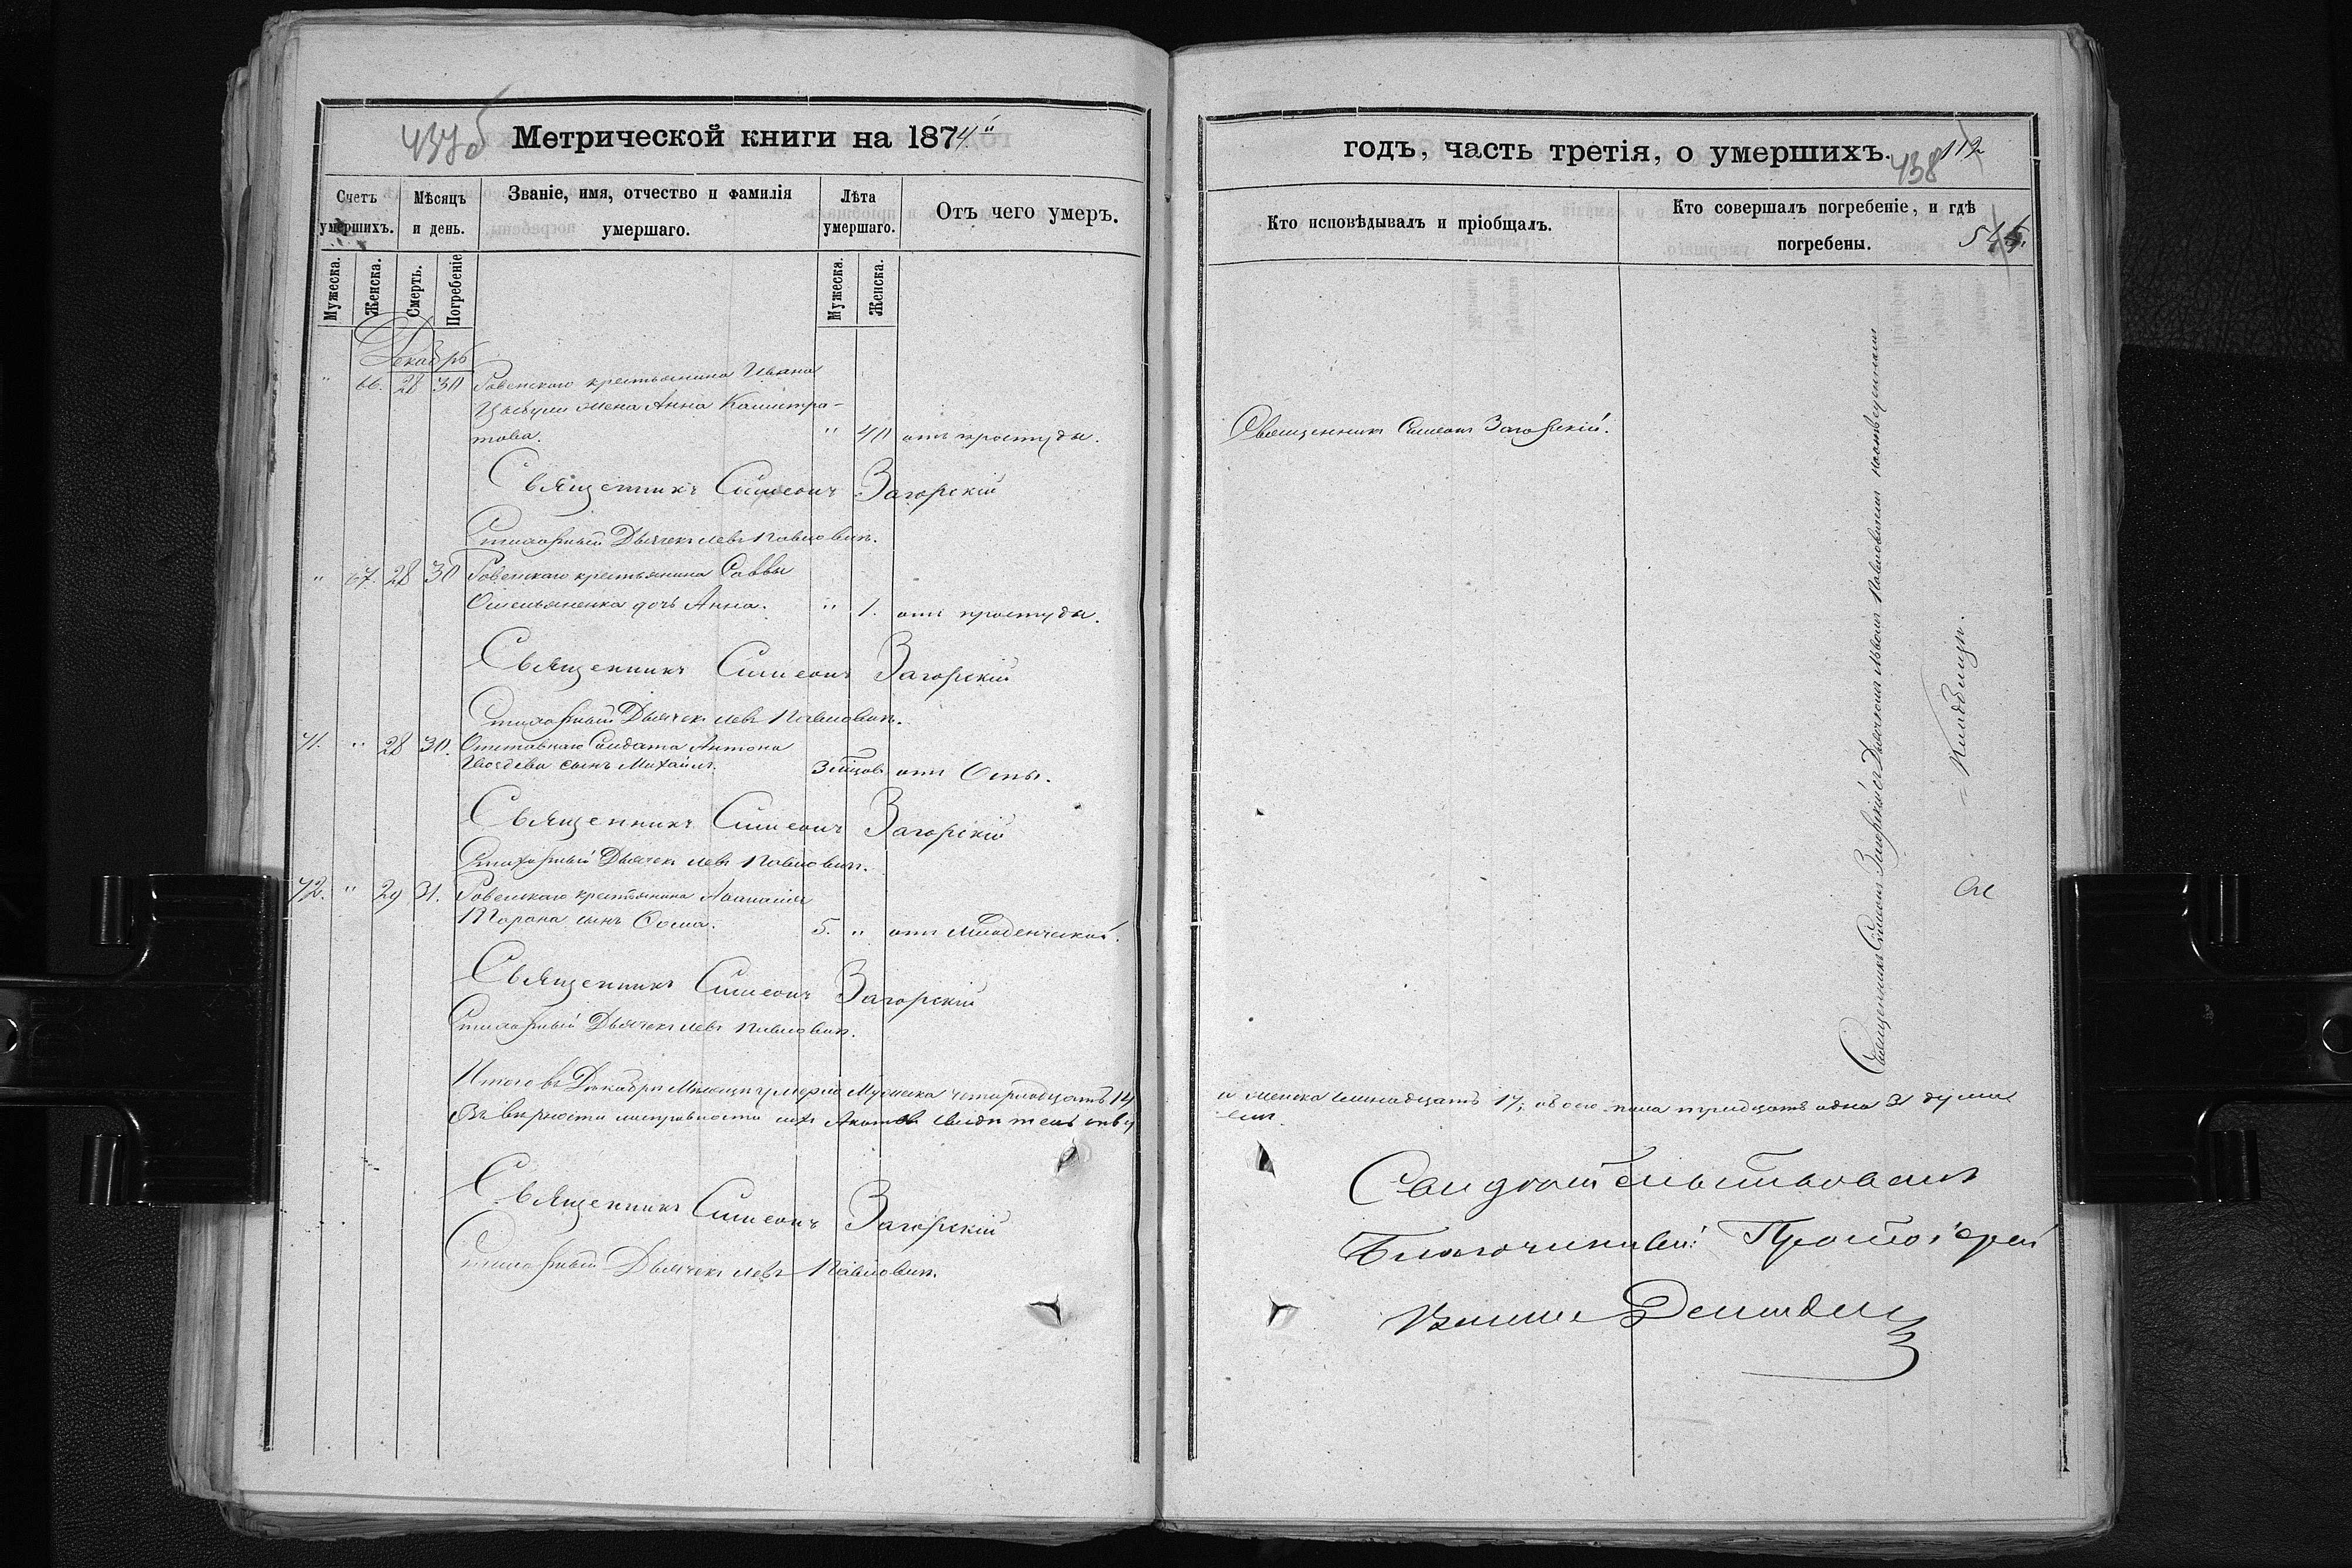 437 об
Метрической книги на 1874й
Счетъ умершихъ.
Мѣсяцъ и день.
Званіе, имя, отчество и фамилія умершаго.
Лѣта умершаго.
Отъ чего умеръ.
Мужеска. Женска. Смерть. Погребеніе
Мужеска. Женска.
Декабрь
" 66. 28 30 Ровенскаго крестьянина Ивана
жена Анна Калистра-
това. " 40 отъ простуды.
Священникъ Симеонъ Загорскій
Стихарный Дьячекъ Левъ Павловичъ.
" 67. 28 30 Ровенскаго крестьянина Саввы
Омельяненка дочь Анна. " 1. отъ простуды.
Священникъ Симеонъ Загорскій
Стихарный Дьячекъ Левъ Павловичъ.
71. " 28 30. Отставнаго Солдата Антона
Гвоздева сынъ Михаилъ. 3 мѣцовъ отъ Оспы.
Священникъ Симеонъ Загорскій
Стихарный Дьячекъ Левъ Павловичъ.
72. " 29 31. Ровенскаго крестьянина Аѳанасія
Мороза сынъ Ѳома. 5. " отъ Младенческой.
Священникъ Симеонъ Загорскій
Стихарный Дьячекъ Левъ Павловичъ.
Итого въ Декабрѣ Мѣсяцѣ умерло Мужеска четырнадцать 14
Въ вѣрности исправности сихъ Актовъ свидѣтельству
Священникъ Симеонъ Загорскій
Стихарный Дьячекъ Левъ Павловичъ.
годъ, часть третія, о умершихъ.
438
112
Кто исповѣдывалъ и пріобщалъ.
Кто совершалъ погребеніе, и гдѣ погребены.
Священникъ Симеонъ Загорскій.
Священникъ Симеонъ Загорскій съ Дьячкомъ Львомъ Павловичемъ на
Кладбищѣ.
и женска семнадцать 17, обоего пола тридцать одна 31 душа
емъ.
Свидѣтельствовалъ
Благочинный Протоіерей